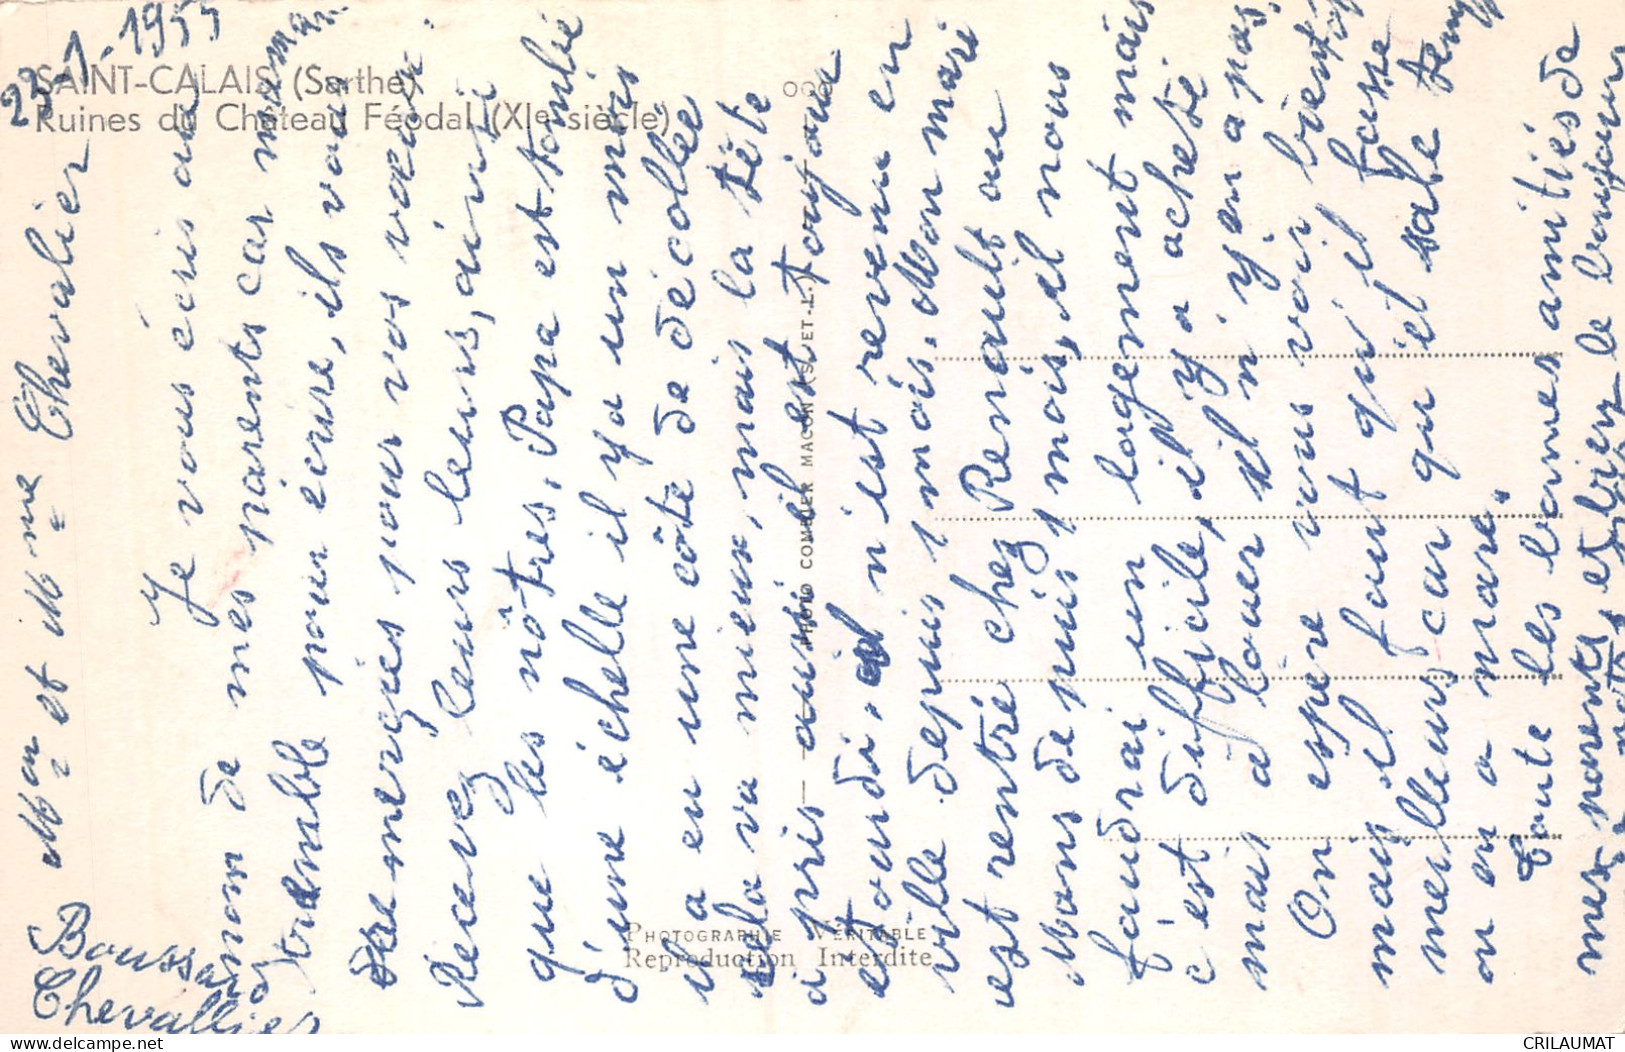 22-1-1955
SAINT-CALAIS (Sarthe)
Ruines du Château Féodal (XIe siècle)
PHOTO COMBIER MACON (S.-ET-L.)
PHOTOGRAPHIE VÉRITABLE
Reproduction Interdite
Mon et Mme Chevalier
Je vous écris au
nom de mes parents car maman
tremble pour écrire, ils vous
remerçies pour vos vœux.
Recevez leurs leurs, ainsi
que les nôtres. Papa est tombé
d'une échelle il y a un mois
il a eu une côte de décollée
cela va mieux, mais la tête
a pris aussi il est toujours
étourdi. il n'est revenu en
ville depuis 1 mois. Mon mari
est rentré chez Renault au
Mans depuis 1 mois, il nous
faudrai un logement mais
c'est difficile, il y a acheté
mais a louer il n'y en a pas.
On espère vous voir bientôt
mais il faut qu'il fasse
meilleur, car qu'el sale temps
on en a marre.
Toute les bonnes amitiés de
mes parents et bien le bonjour
Boussard
Chevallier
CRILAUMAT